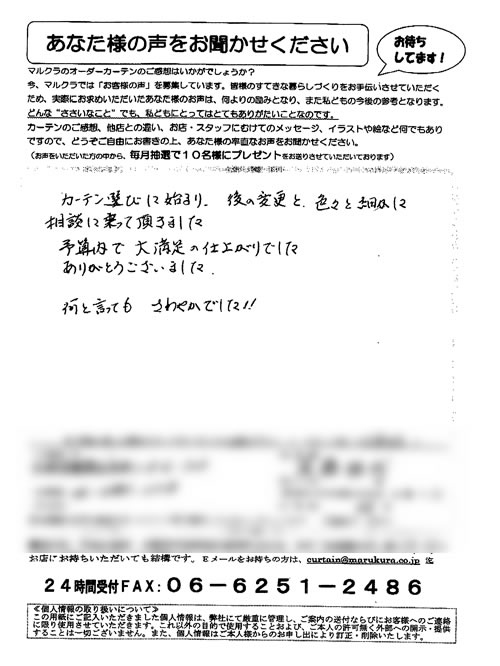 あなた様の声をお聞かせください
お待ち
してます！
マルクラのオーダーカーテンのご感想はいかがでしょうか？
今、マルクラでは「お客様の声」を募集しています。皆様のすてきな暮らしづくりをお手伝いさせていただく
ため、実際にお求めいただいたあなた様のお声は、何よりの励みとなり、また私どもの今後の参考となります。
どんな“ささいなこと”でも、私どもにとってはとてもありがたいことなのです。
カーテンのご感想、他店との違い、お店・スタッフにむけてのメッセージ、イラストや絵など何でもあり
ですので、どうぞご自由にお書きの上、あなた様の率直なお声をお聞かせください。
（お声をいただいた方の中から、毎月抽選で１０名様にプレゼントをお送りさせていただいております）
カーテン選びに始まり、後の変更と、色々と細かに
相談に乗って頂きました
予算内で大満足の仕上がりでした
ありがとうございました.
何と言っても さわやかでした!!
お店にお持ちいただいても結構です。Eメールをお持ちの方は、curtain@marukura.co.jp 迄
２４時間受付FAX：０６－６２５１－２４８６
≪個人情報の取り扱いについて≫
この用紙にご記入いただきました個人情報は、弊社にて厳重に管理し、ご案内の送付ならびにお客様へのご連絡
に限り使用させていただきます。これ以外の目的で使用することおよび、ご本人の許可無く外部への開示・提供
することは一切ございません。また、個人情報はご本人様からのお申し出により訂正・削除いたします。